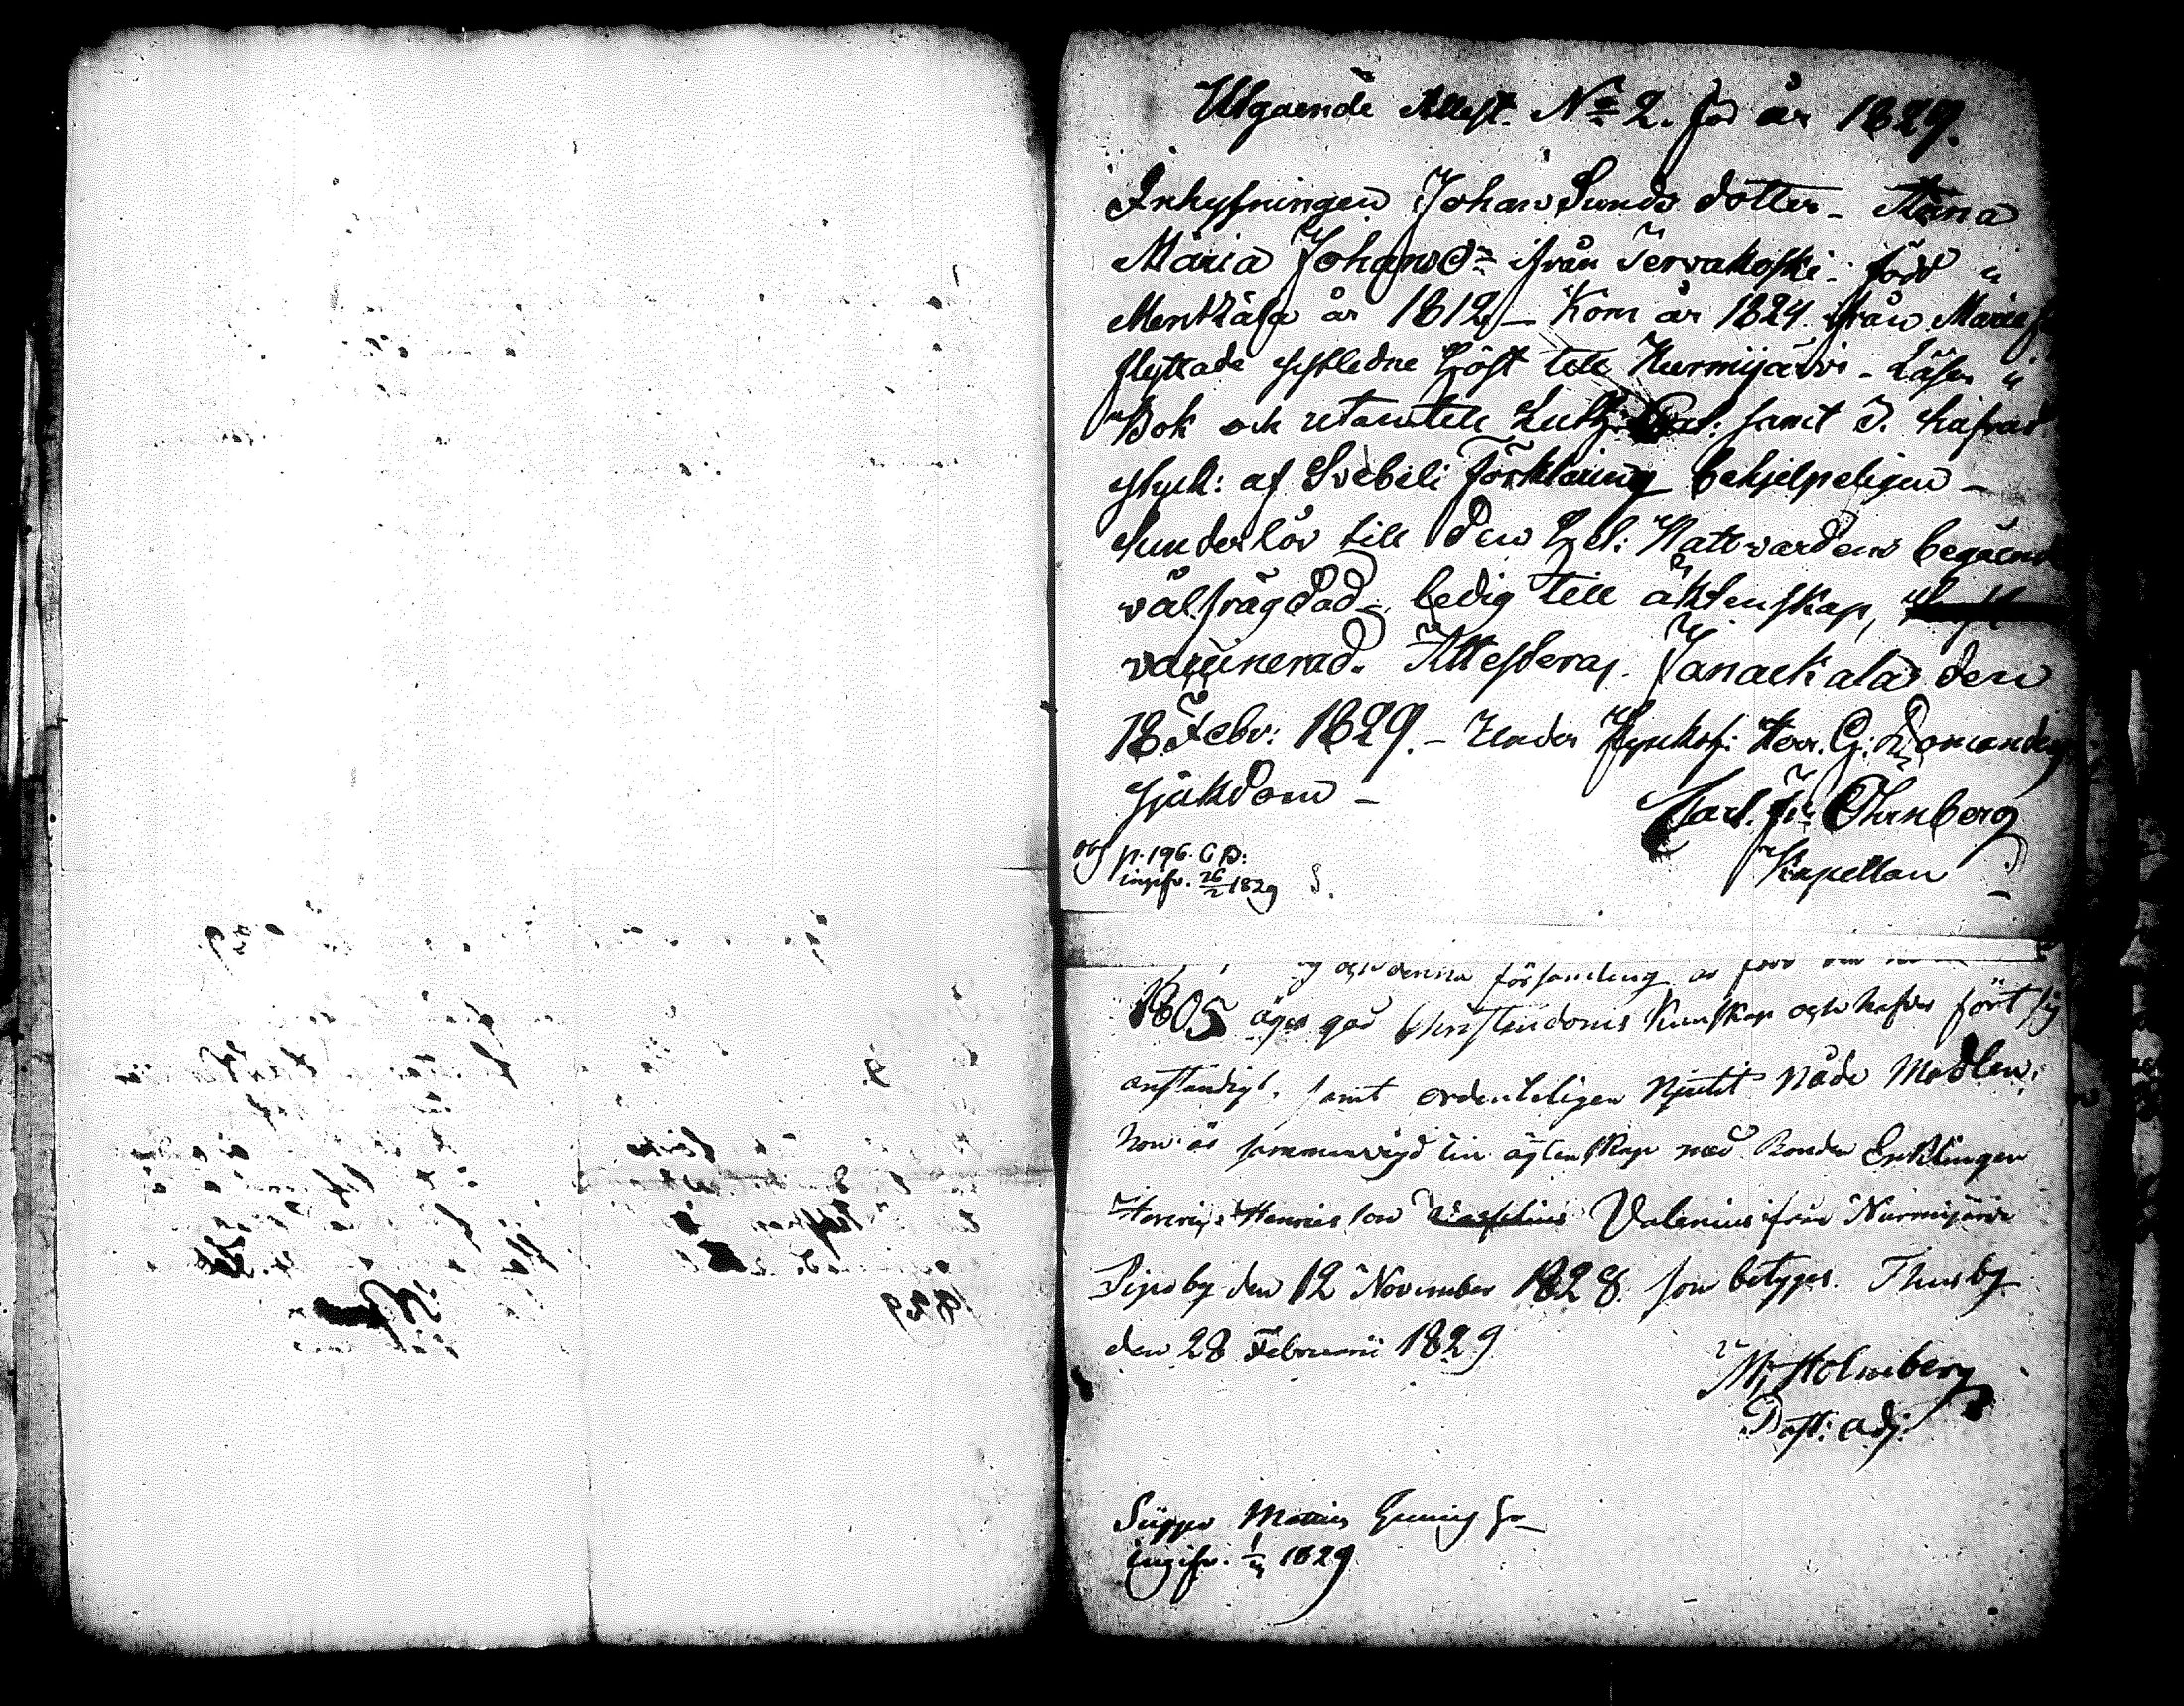 Utgaende Attest. No 2. för år 1829.
Inhysningen Johan Sunds dotter - Anna
Maria Johansd: ifrån Tervakoski - född i
Mentzälä år 1812 - Kom år 1824 ifrån
flyttade sistledne höst till Nurmijärvi - Läser i
Bok och utantill Luth: samt
styck: af Svebili Förklaring behjelpeligen -
hinderlös till den hel: Nattvardens begående
välfrägdad - ledig till äktenskap,
vaccinerad. Attesteras. Janackala den
18 Febr: 1829. - Under Kyrkoh: Herr. G:
sjukdom -
Carl. Fr: Öhnberg
Kapellan
p. 196. O.B:
ingifv. 26/2 1829
och denna församling är född
1805 äger god Christendoms Kunskap och hafver fört sig
anständigt, samt ordenteligen njutit nåde Medlen;
hon är sammanvigd till ägtenskap med Bonden Enklingen
Henric Henricsson Valenius ifrån Nurmijärvi
by den 12 November 1828. som betyges. Thusby
den 28 Februarii 1829
M: Holmberg
Past: adj:
Matts
ingifv. 1829